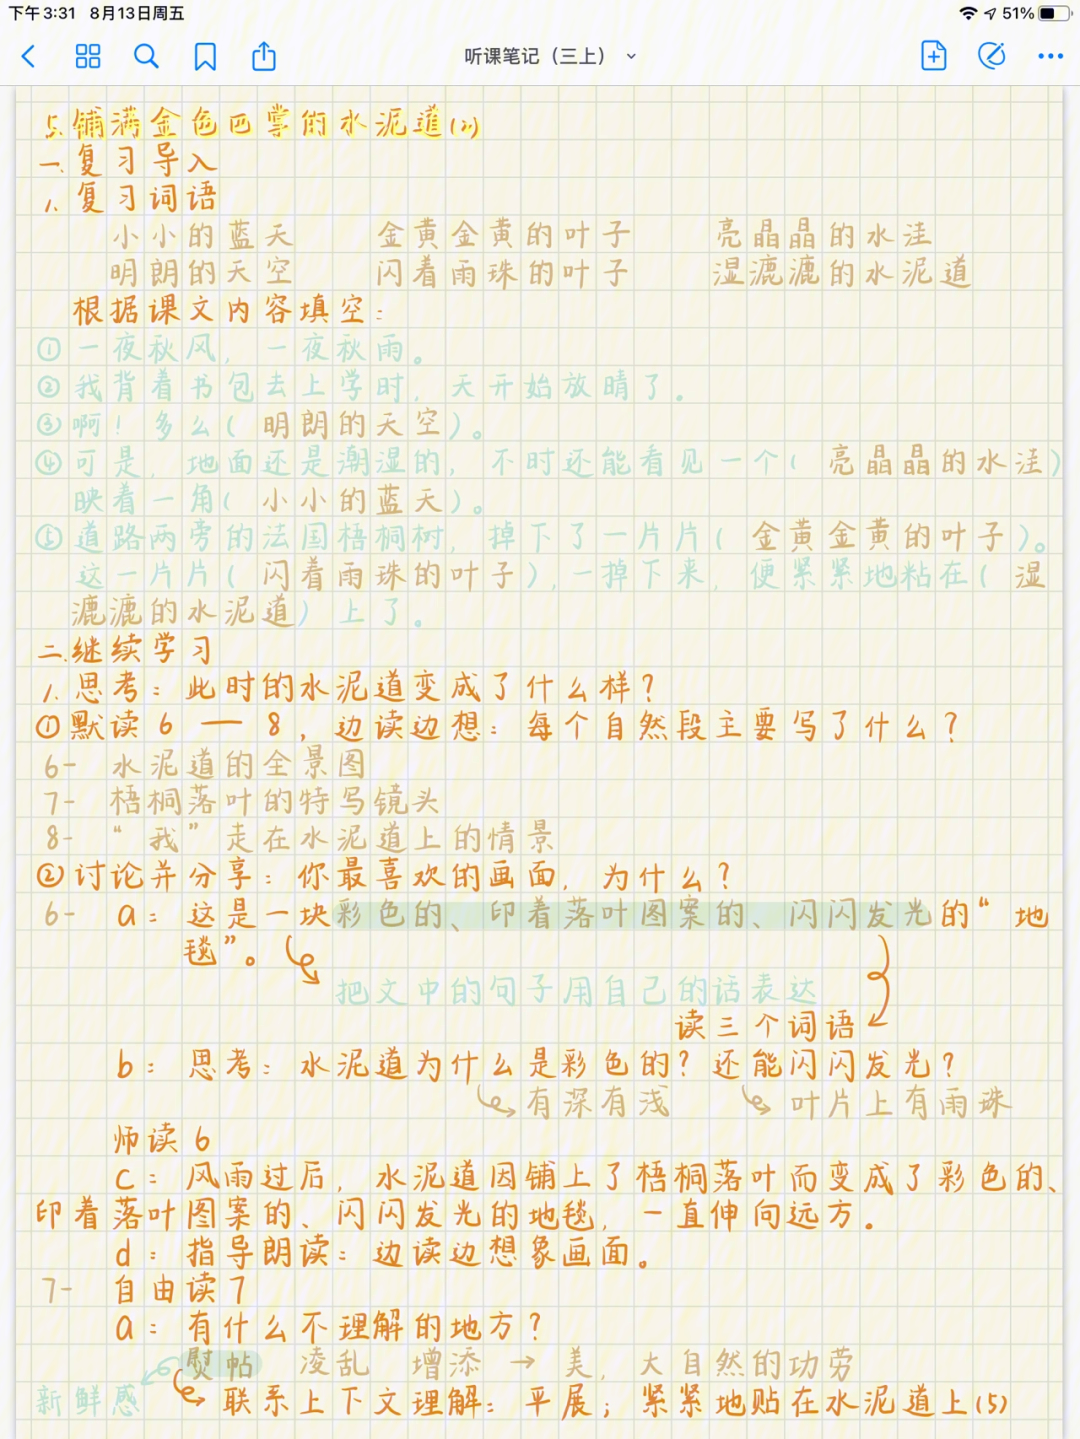 下午3:31 8月13日周五
51%
听课笔记（三上）
5.铺满金色巴掌的水泥道(2)
一.复习导入
1.复习词语
小小的蓝天 金黄金黄的叶子 亮晶晶的水洼
明朗的天空 闪着雨珠的叶子 湿漉漉的水泥道
根据课文内容填空：
①一夜秋风，一夜秋雨。
②我背着书包去上学时，天开始放晴了。
③啊！多么(明朗的天空)。
④可是，地面还是潮湿的，不时还能看见一个(亮晶晶的水洼)
映着一角(小小的蓝天)。
⑤道路两旁的法国梧桐树，掉下了一片片(金黄金黄的叶子)。
这一片片(闪着雨珠的叶子)，一掉下来，便紧紧地粘在(湿
漉漉的水泥道)上了。
二.继续学习
1.思考：此时的水泥道变成了什么样？
①默读6—8，边读边想：每个自然段主要写了什么？
6- 水泥道的全景图
7- 梧桐落叶的特写镜头
8- “我”走在水泥道上的情景
②讨论并分享：你最喜欢的画面，为什么？
6- a：这是一块彩色的、印着落叶图案的、闪闪发光的“地
毯”。
把文中的句子用自己的话表达
读三个词语
b：思考：水泥道为什么是彩色的？还能闪闪发光？
有深有浅 叶片上有雨珠
师读6
c：风雨过后，水泥道因铺上了梧桐落叶而变成了彩色的、
印着落叶图案的、闪闪发光的地毯，一直伸向远方。
d：指导朗读：边读边想象画面。
7- 自由读7
a：有什么不理解的地方？
熨帖 凌乱 增添→美，大自然的功劳
新鲜感 联系上下文理解：平展；紧紧地贴在水泥道上(5)